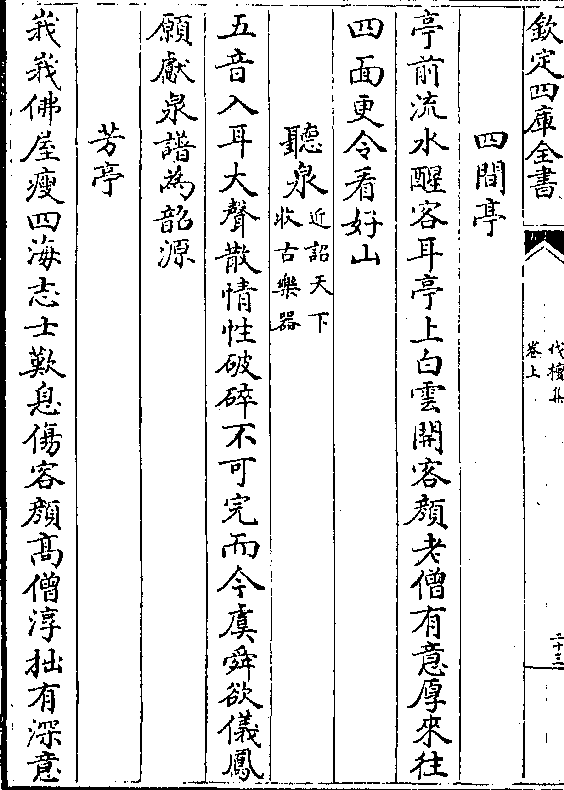 欽定四庫全書
伐檀集
卷上
二十三
四間亭
亭前流水醒客耳亭上白雲開客顔老僧有意厚來往
四面更令看好山
聽泉
近詔天下
收古樂器
五音入耳大聲散情性破碎不可完而今虞舜欲儀鳳
願獻泉譜為韶源
芳亭
峩峩佛屋瘦四海志士歎息傷容顔高僧淳拙有深意